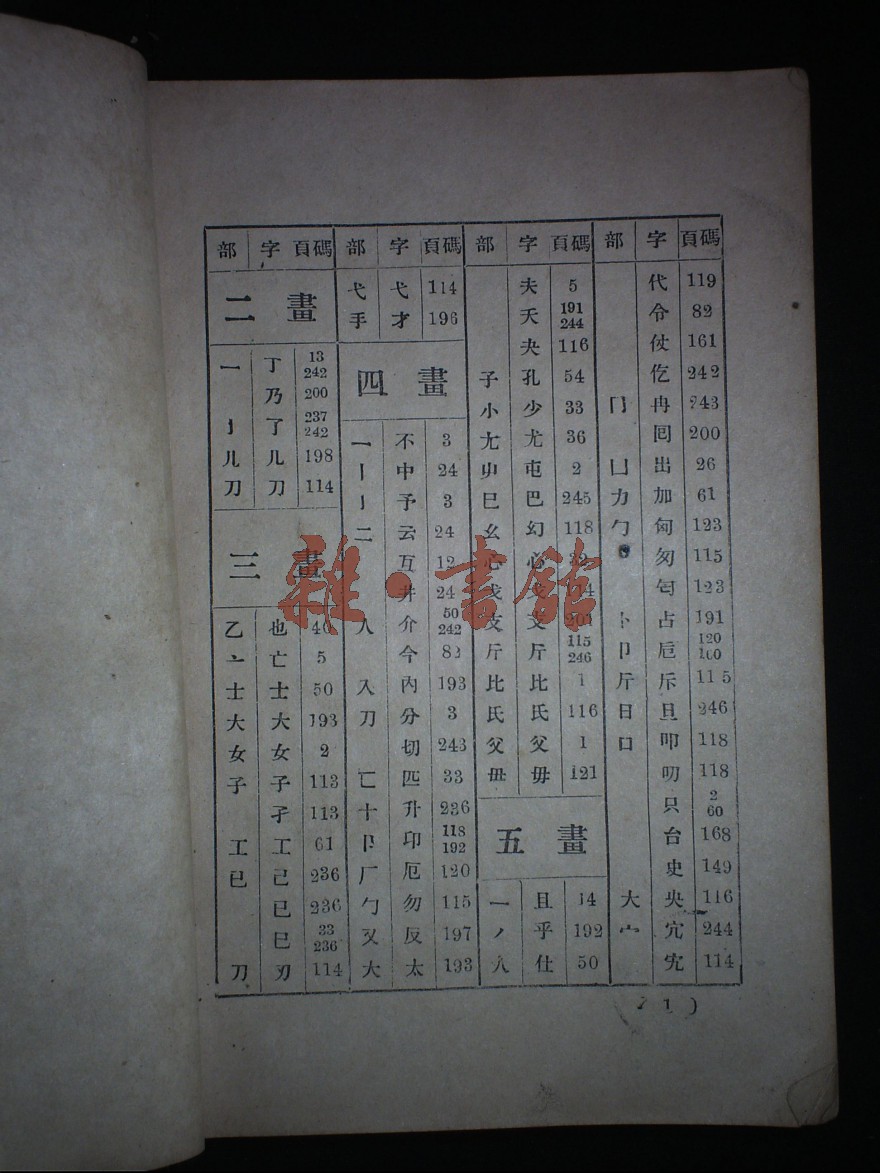 部 字 頁碼
二畫
一 丁 13 242
乃 200
亅 了 237 242
儿 儿 198
刀 刀 114
三畫
乙 也 40
亠 亡 5
士 士 50
大 大 193
女 女 2
子 子 113
孑 113
工 工 61
已 己 236
已 236
巳 33 236
刀 刃 114
部 字 頁碼
弋 弋 114
手 才 196
四畫
一 不 3
丨 中 24
亅 予 3
二 云 24
互 12
井 24
人 介 50 242
今 82
入 內 193
刀 分 3
切 243
匸 匹 33
十 升 236
卩 印 118 192
厂 厄 120
勹 勿 115
又 反 197
大 太 193
部 字 頁碼
夫 5
夭 191 244
夬 116
子 孔 54
小 少 33
尢 尤 36
屮 屯 2
巳 巴 245
幺 幻 118
心 心
戈 戈
支 支
斤 斤 115 246
比 比 1
氏 氏 116
父 父 1
毌 毋 121
五畫
一 且 14
丿 乎 192
人 仕 50
部 字 頁碼
代 119
令 82
仗 161
仡 242
冂 冉 243
囘 200
凵 出 26
力 加 61
勹 匈 123
匆 115
匄 123
卜 占 191
卩 卮 120 160
斤 斥 115
日 旦 246
口 叩 118
叨 118
只 2 60
台 168
史 149
大 央 116
宀 宂 244
宄 114
(1)
雜·書館